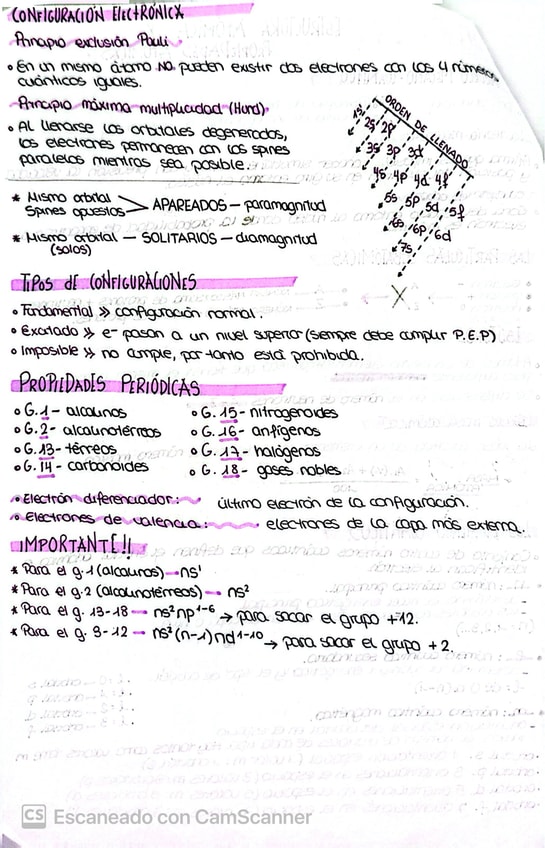 CONFIGURACIÓN ELECTRÓNICA
Principio exclusión Pauli
• En un mismo átomo NO pueden existir dos electrones con los 4 números
cuánticos iguales.
Principio máxima multiplicidad (Hund).
• Al llenarse los orbitales degenerados,
los electrones permanecen con los spines
paralelos mientras sea posible.
* Mismo orbital
Spines opuestos > APAREADOS — paramagnitud
* Mismo orbital — SOLITARIOS — diamagnitud
(solos)
ORDEN DE LLENADO
1s
2s 2p
3s 3p 3d
4s 4p 4d 4f
5s 5p 5d 5f
6s 6p 6d
7s
TIPOS de CONFIGURACIONES
• Fundamental » configuración normal.
• Excitado » e- pasan a un nivel superior (siempre debe cumplir P.E.P)
• Imposible » no cumple, por tanto está prohibida.
PROPIEDADES PERIÓDICAS
• G.1- alcalinos
• G.2- alcalinotérreos
• G.13- térreos
• G.14- carbonoides
• G.15- nitrogenoides
• G.16- anfígenos
• G.17- halógenos
• G.18- gases nobles
• Electrón diferenciador: último electrón de la configuración.
• Electrones de valencia: electrones de la capa más externa.
IMPORTANTE!!
* Para el g.1 (alcalinos) — ns¹
* Para el g.2 (alcalinotérreos) — ns²
* Para el g. 13-18 — ns²np¹⁻⁶ → para sacar el grupo +12.
* Para el g. 3-12 — ns²(n-1)nd¹⁻¹⁰ → para sacar el grupo +2.
CS Escaneado con CamScanner